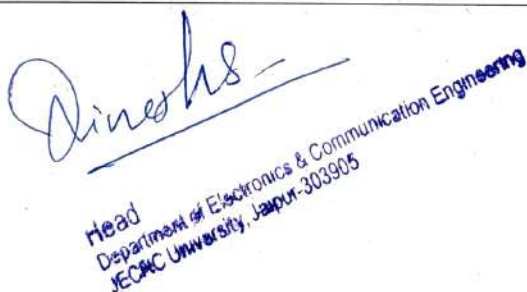 Dinesh
Head
Department of Electronics & Communication Engineering
JECRC University, Jaipur-303905